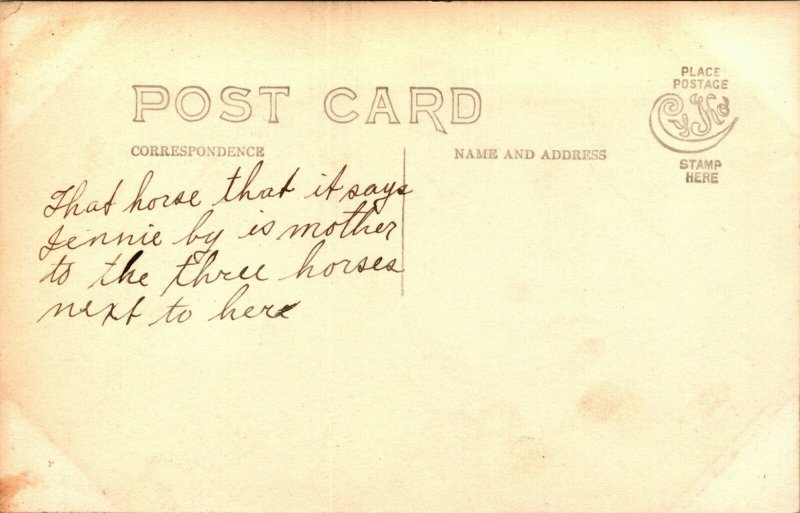 POST CARD
CORRESPONDENCE
NAME AND ADDRESS
PLACE
POSTAGE
CyKo
STAMP
HERE
That horse that it says
Jennie by is mother
to the three horses
next to here